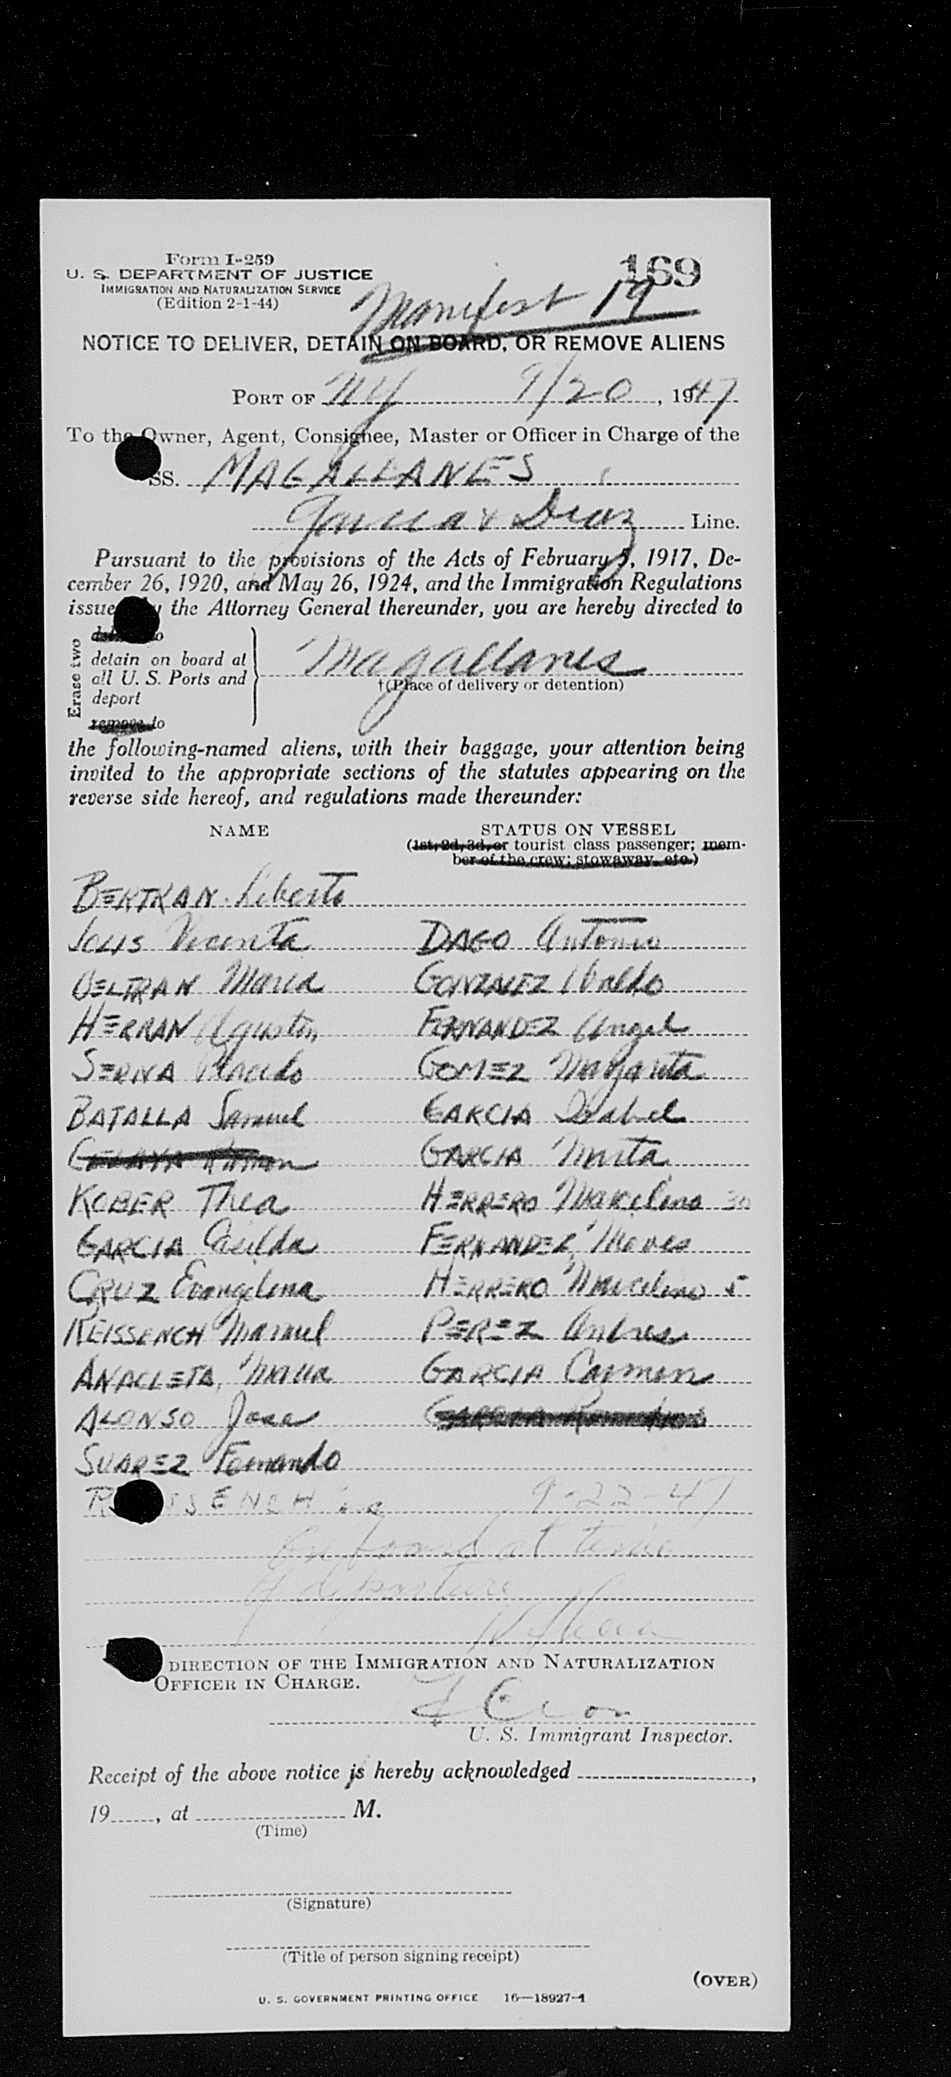 Form I-259
169
U. S. DEPARTMENT OF JUSTICE
IMMIGRATION AND NATURALIZATION SERVICE
(Edition 2-1-44)
Manifest 19
NOTICE TO DELIVER, DETAIN ON BOARD, OR REMOVE ALIENS
PORT OF NY 9/20, 1947
To the Owner, Agent, Consignee, Master or Officer in Charge of the
SS. MAGALLANES
Garcia & Diaz Line.
Pursuant to the provisions of the Acts of February 5, 1917, De-
cember 26, 1920, and May 26, 1924, and the Immigration Regulations
issued by the Attorney General thereunder, you are hereby directed to
Erase two
detain on board at
all U. S. Ports and
deport
remove to
Magallanes
†(Place of delivery or detention)
the following-named aliens, with their baggage, your attention being
invited to the appropriate sections of the statutes appearing on the
reverse side hereof, and regulations made thereunder:
NAME STATUS ON VESSEL
(1st, 2d, 3d, or tourist class passenger; mem-
ber of the crew; stowaway, etc.)
BERTRAN Liberto
Vicenta DAGO Antonio
BELTRAN Maria GONZALEZ Ubaldo
HERRAN Agustin FERNANDEZ Angel
SERNA Placido GOMEZ Margarita
BATALLA Samuel GARCIA Isabel
Ramon GARCIA Marta
KOBER Thea HERRERO Marcelino 30
GARCIA Casilda FERNANDEZ,
CRUZ Evangelina HERRERO Marcelino 5
REISSENCH Manuel PEREZ Andres
ANACLETA, Maria GARCIA Carmen
ALONSO Jose GARCIA
SUAREZ Fernando
9-22-47
On board at time
of departure
DIRECTION OF THE IMMIGRATION AND NATURALIZATION
OFFICER IN CHARGE.
U. S. Immigrant Inspector.
Receipt of the above notice is hereby acknowledged ,
19 , at M.
(Time)
(Signature)
(Title of person signing receipt)
(OVER)
U. S. GOVERNMENT PRINTING OFFICE 16—18927-1